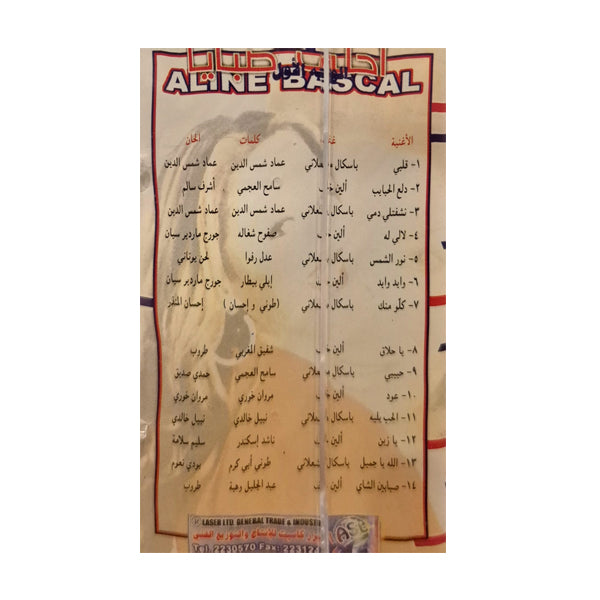 أحلى صبايا
البوم الأول
ALINE BASCAL
الأغنية كلمات الحان
١- قلبي باسكال مشعلاني عماد شمس الدين عماد شمس الدين
٢- دلع الحبايب ألين سامح العجمي أشرف سالم
٣- نشفتلي دمي باسكال مشعلاني عماد شمس الدين عماد شمس الدين
٤- لالي له ألين صفوح شغاله جورج ماردير سيان
٥- نور الشمس باسكال مشعلاني عدل رفوا لحن يوناني
٦- وايد وايد ألين إيلي بيطار جورج ماردير سيان
٧- كلو منك باسكال مشعلاني (طوني و إحسان) إحسان المنذر
٨- يا حلاق ألين شفيق المغربي طروب
٩- حبيبي باسكال مشعلاني سامح العجمي حمدي صديق
١٠- عود ألين مروان خوري مروان خوري
١١- الحب بليه باسكال مشعلاني نبيل خالدي نبيل خالدي
١٢- يا زين ألين ناشد إسكندر سليم سلامة
١٣- الله يا جميل باسكال مشعلاني طوني أبي كرم بودي نعوم
١٤- صبابين الشاي ألين عبد الجليل وهبة طروب
LASER LTD. GENERAL TRADE & INDUSTR
ليزر كاسيت للانتاج والتوزيع الفني
Tel. 2230570 Fax: 223124